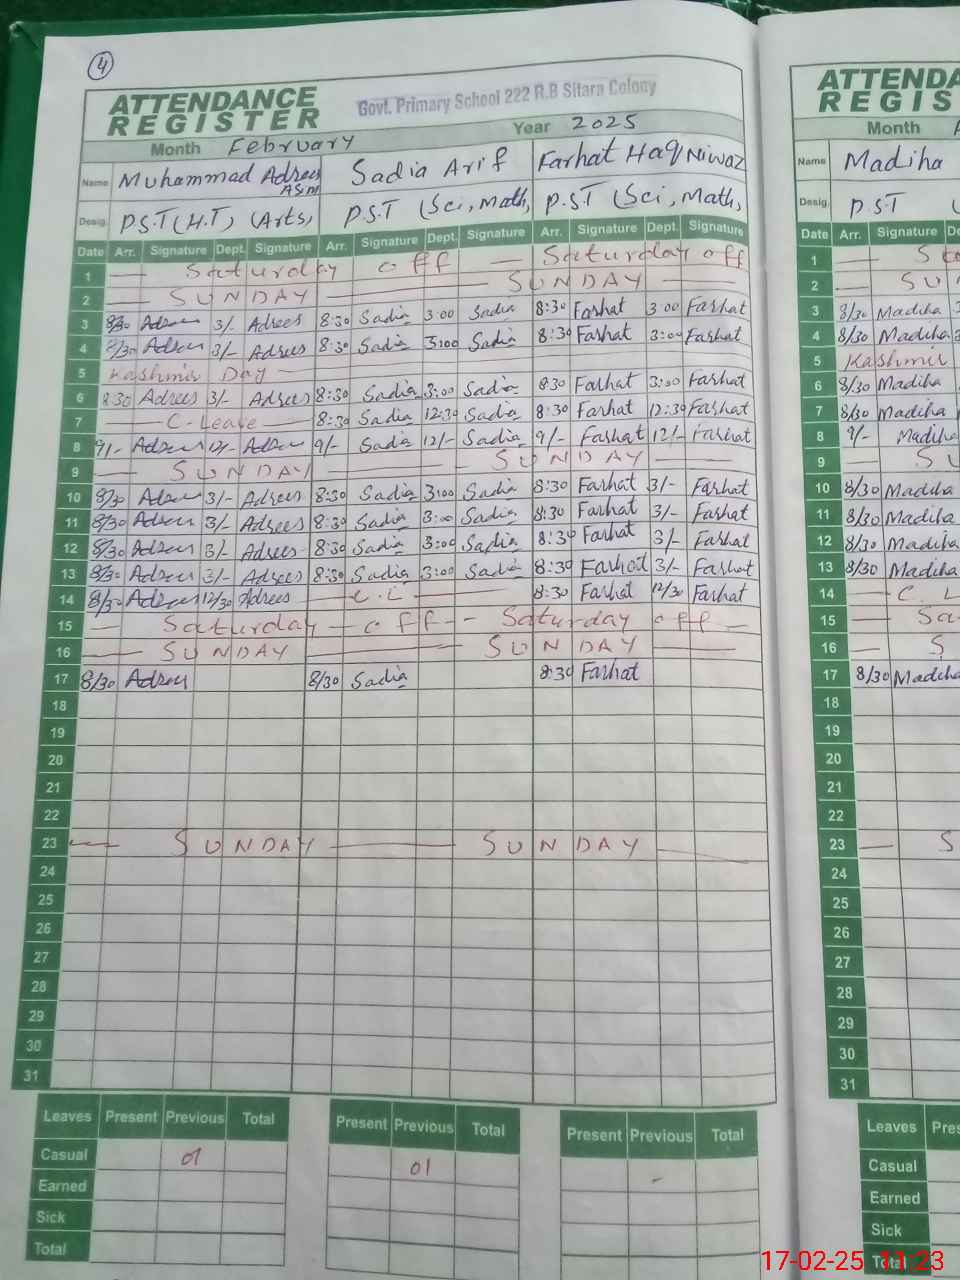 4
ATTENDANCE REGISTER Govt. Primary School 222 R.B Sitara Colony
Month February Year 2025
Name Muhammad Adrees Asim Sadia Arif Farhat Haq Niwaz
Desig. P.S.T (H.T) (Arts) P.S.T (Sci, Math, P.S.T (Sci, Math,
Date Arr. Signature Dept. Signature Arr. Signature Dept. Signature Arr. Signature Dept. Signature
1 — Saturday off — Saturday off
2 — SUNDAY — SUNDAY —
3 8/30 Adrees 3/- Adrees 8:30 Sadia 3:00 Sadia 8:30 Farhat 3:00 Farhat
4 8/30 Adrees 3/- Adrees 8:30 Sadia 3:00 Sadia 8:30 Farhat 3:00 Farhat
5 Kashmir Day —
6 8:30 Adrees 3/- Adrees 8:30 Sadia 3:00 Sadia 8:30 Farhat 3:00 Farhat
7 — C-Leave — 8:30 Sadia 12:30 Sadia 8:30 Farhat 12:30 Farhat
8 9/- Adrees 12/- Adrees 9/- Sadia 12/- Sadia 9/- Farhat 12/- Farhat
9 — SUNDAY — SUNDAY —
10 8/30 Adrees 3/- Adrees 8:30 Sadia 3:00 Sadia 8:30 Farhat 3/- Farhat
11 8/30 Adrees 3/- Adrees 8:30 Sadia 3:00 Sadia 8:30 Farhat 3/- Farhat
12 8/30 Adrees 3/- Adrees 8:30 Sadia 3:00 Sadia 8:30 Farhat 3/- Farhat
13 8/30 Adrees 3/- Adrees 8:30 Sadia 3:00 Sadia 8:30 Farhat 3/- Farhat
14 8/30 Adrees 12/30 Adrees — C.L — 8:30 Farhat 12/30 Farhat
15 — Saturday — off — Saturday off —
16 — SUNDAY — SUNDAY —
17 8/30 Adrees 8/30 Sadia 8:30 Farhat
18
19
20
21
22
23 — SUNDAY — SUNDAY —
24
25
26
27
28
29
30
31
Leaves Present Previous Total Present Previous Total Present Previous Total
Casual 01 01 -
Earned
Sick
Total
ATTENDA
REGIS
Month
Name Madiha
Desig. P.S.T
Date Arr. Signature
1 —
2 — SU
3 8/30 Madiha
4 8/30 Madiha
5 Kashmir
6 8/30 Madiha
7 8/30 Madiha
8 9/- Madiha
9 — SU
10 8/30 Madiha
11 8/30 Madiha
12 8/30 Madiha
13 8/30 Madiha
14 — C. L
15 — Sa
16 — S
17 8/30 Madiha
18
19
20
21
22
23 — S
24
25
26
27
28
29
30
31
Leaves Pres
Casual
Earned
Sick
Total
17-02-25 11:23